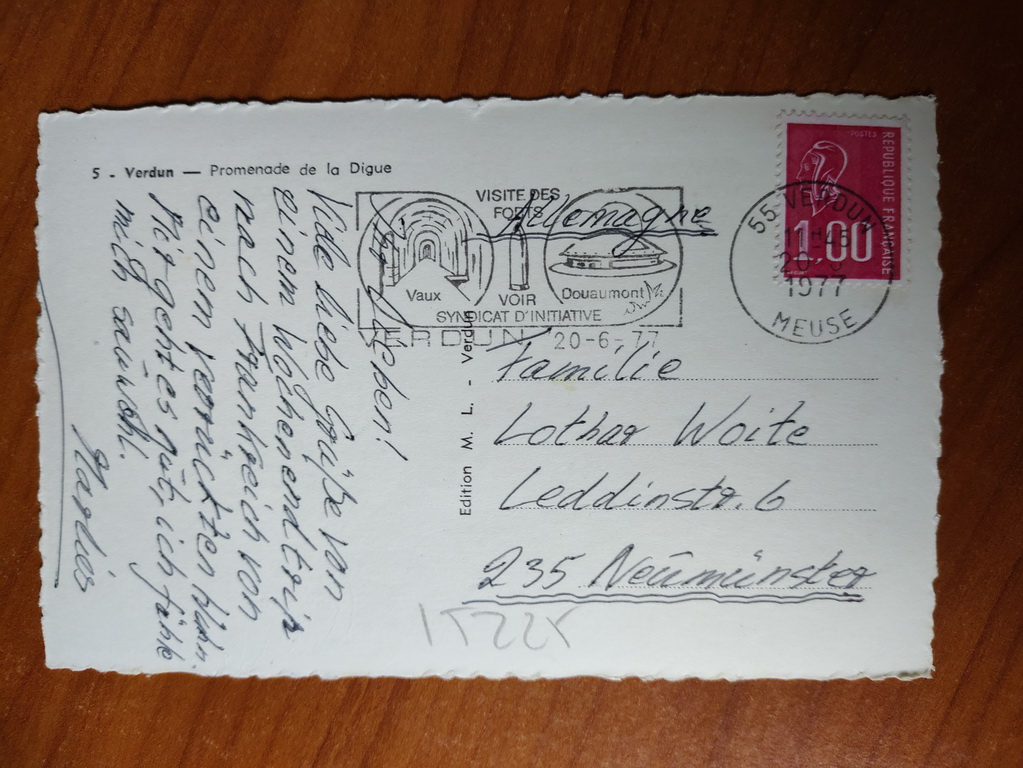 5 - Verdun — Promenade de la Digue
Ihr Lieben!
Viele liebe Grüße von
einem Wochenendtrip
nach Frankreich von
einem verrückten Huhn.
Mir geht es gut, ich fühle
mich sauwohl.
Marlis
Edition M. L. - Verdun
VISITE DES
FORTS
Vaux
VOIR
Douaumont
SYNDICAT D'INITIATIVE
VERDUN 20-6-77
POSTES
REPUBLIQUE FRANÇAISE
1,00
55 VERDUN
11H45
1977
MEUSE
Allemagne
Familie
Lothar Woite
Leddinstr. 6
235 Neumünster